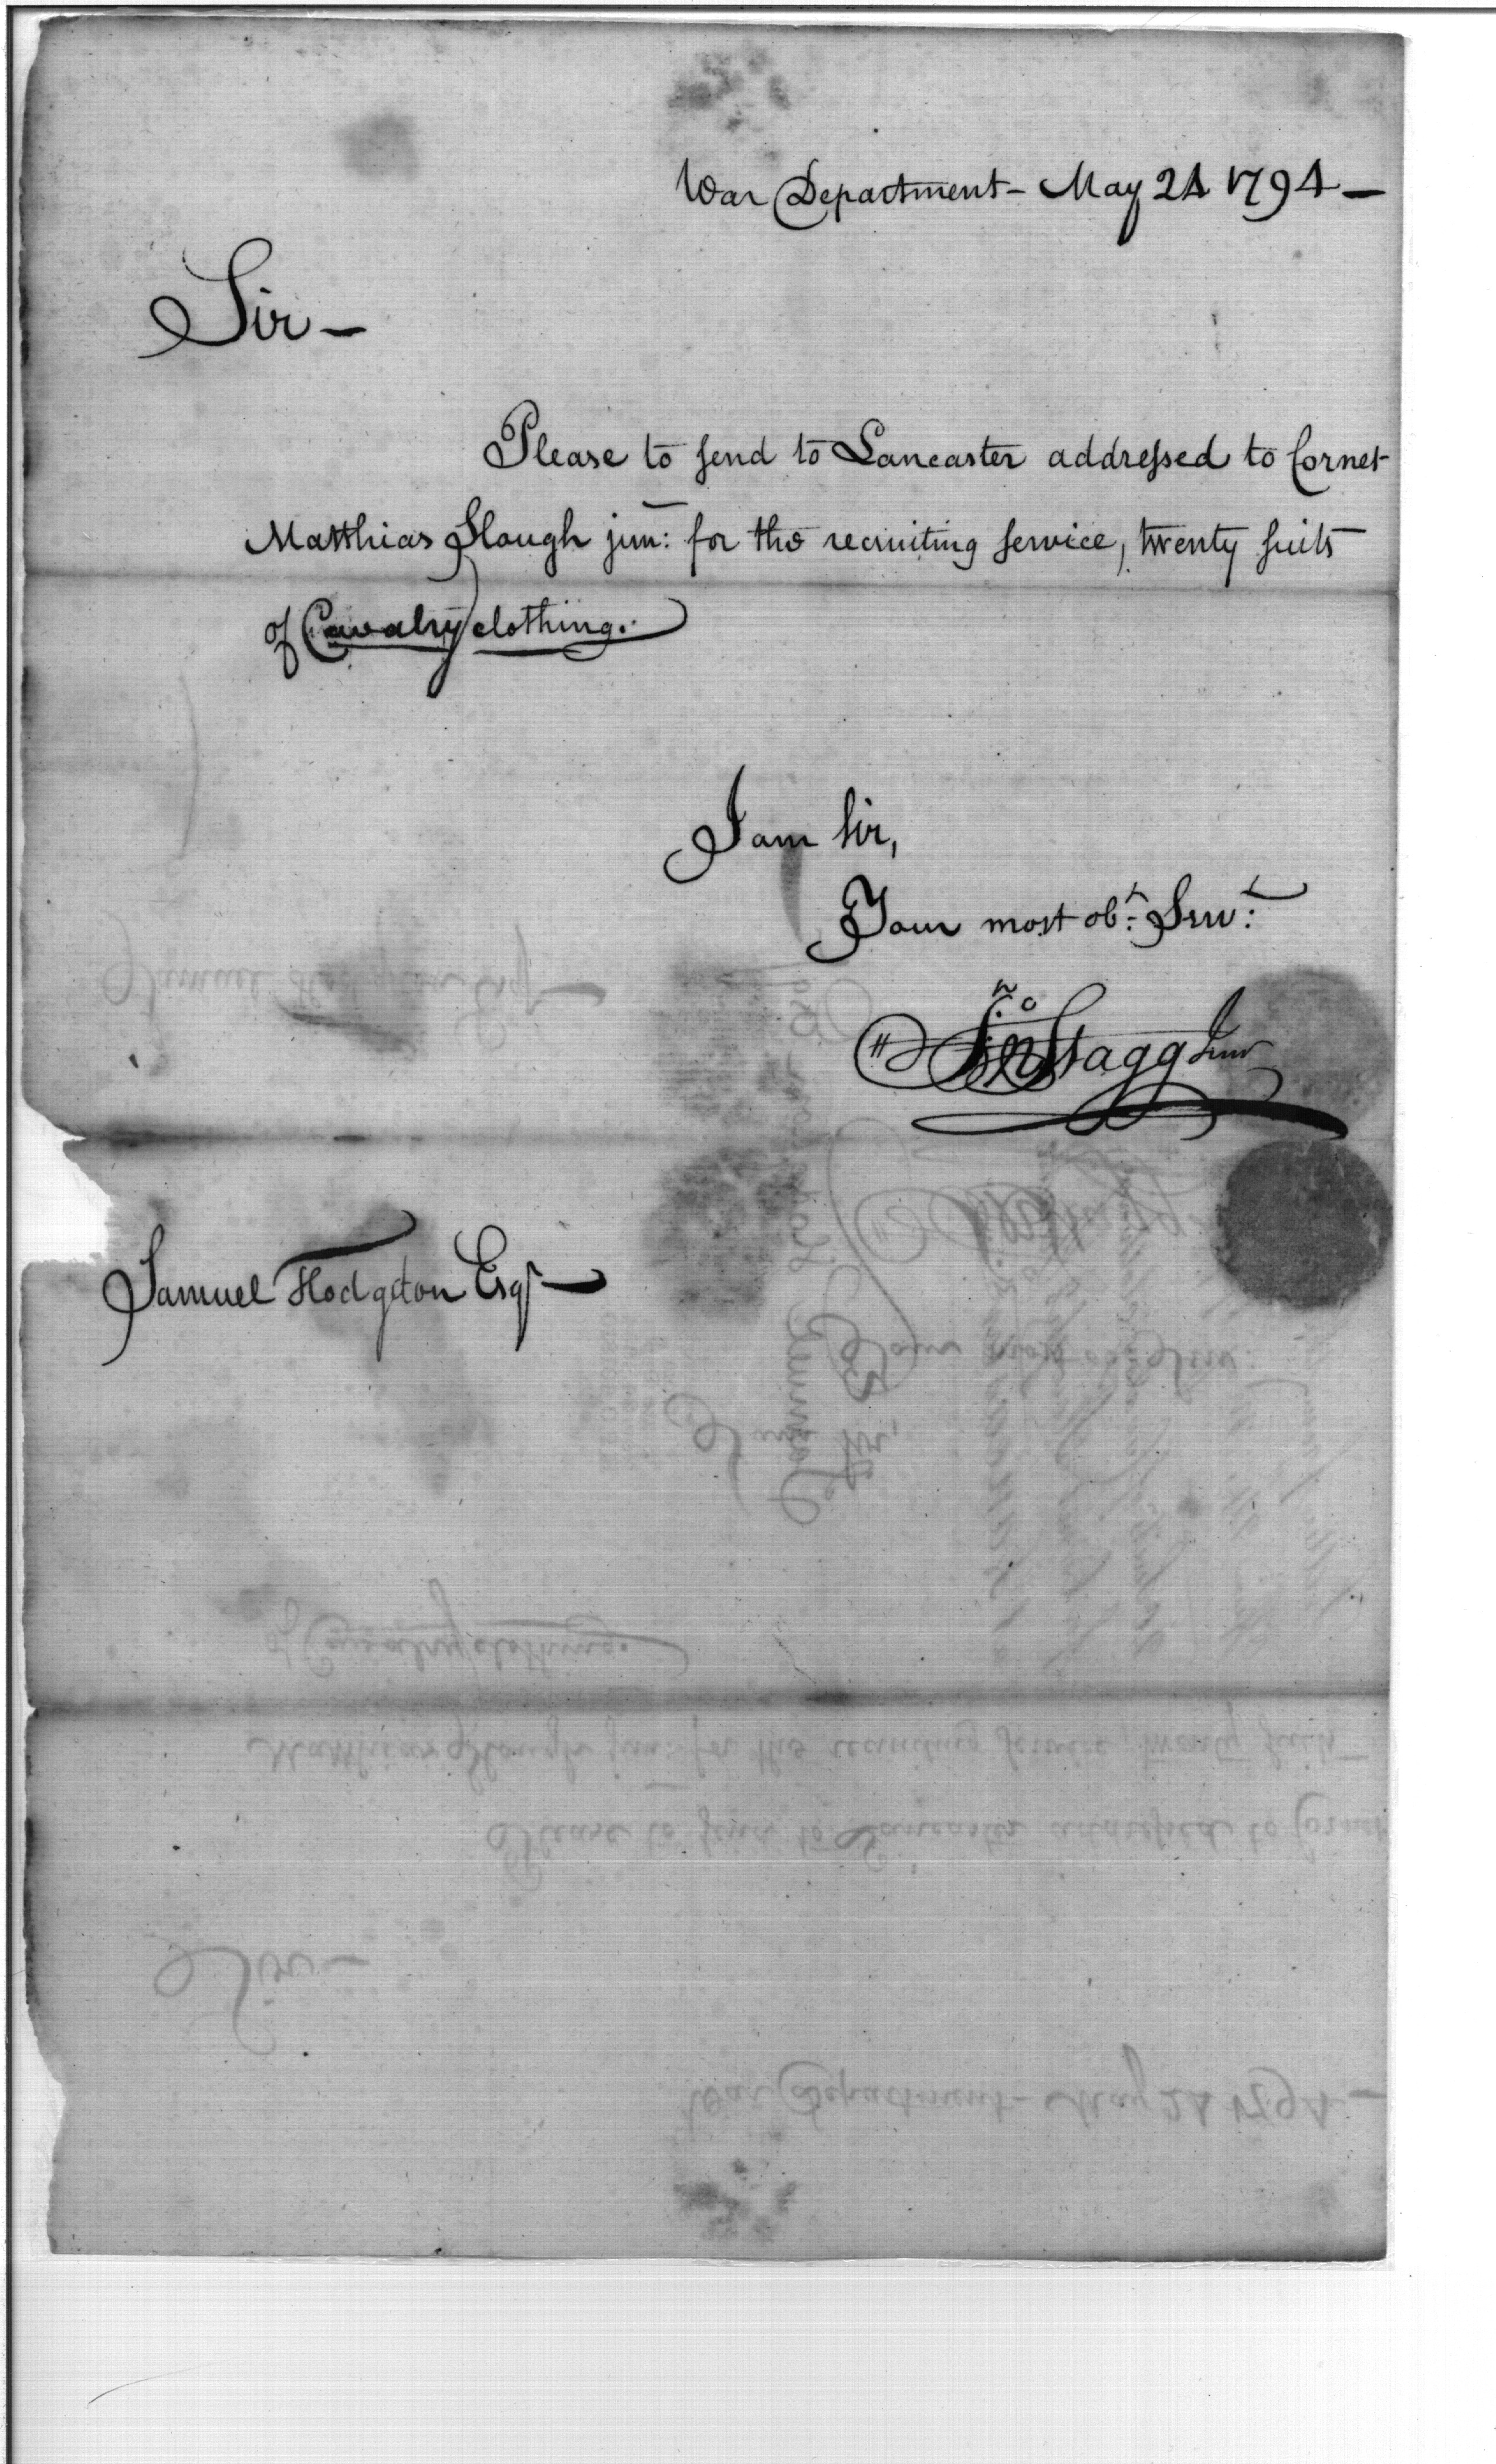 War Department - May 24 1794 -
Sir -
Please to send to Lancaster addressed to Cornet
Matthias Slough jun: for the recruiting service, twenty suits
of Cavalry clothing.
I am Sir,
Your most obt: Servt:
Jno Stagg Junr
Samuel Hodgdon Esqr -